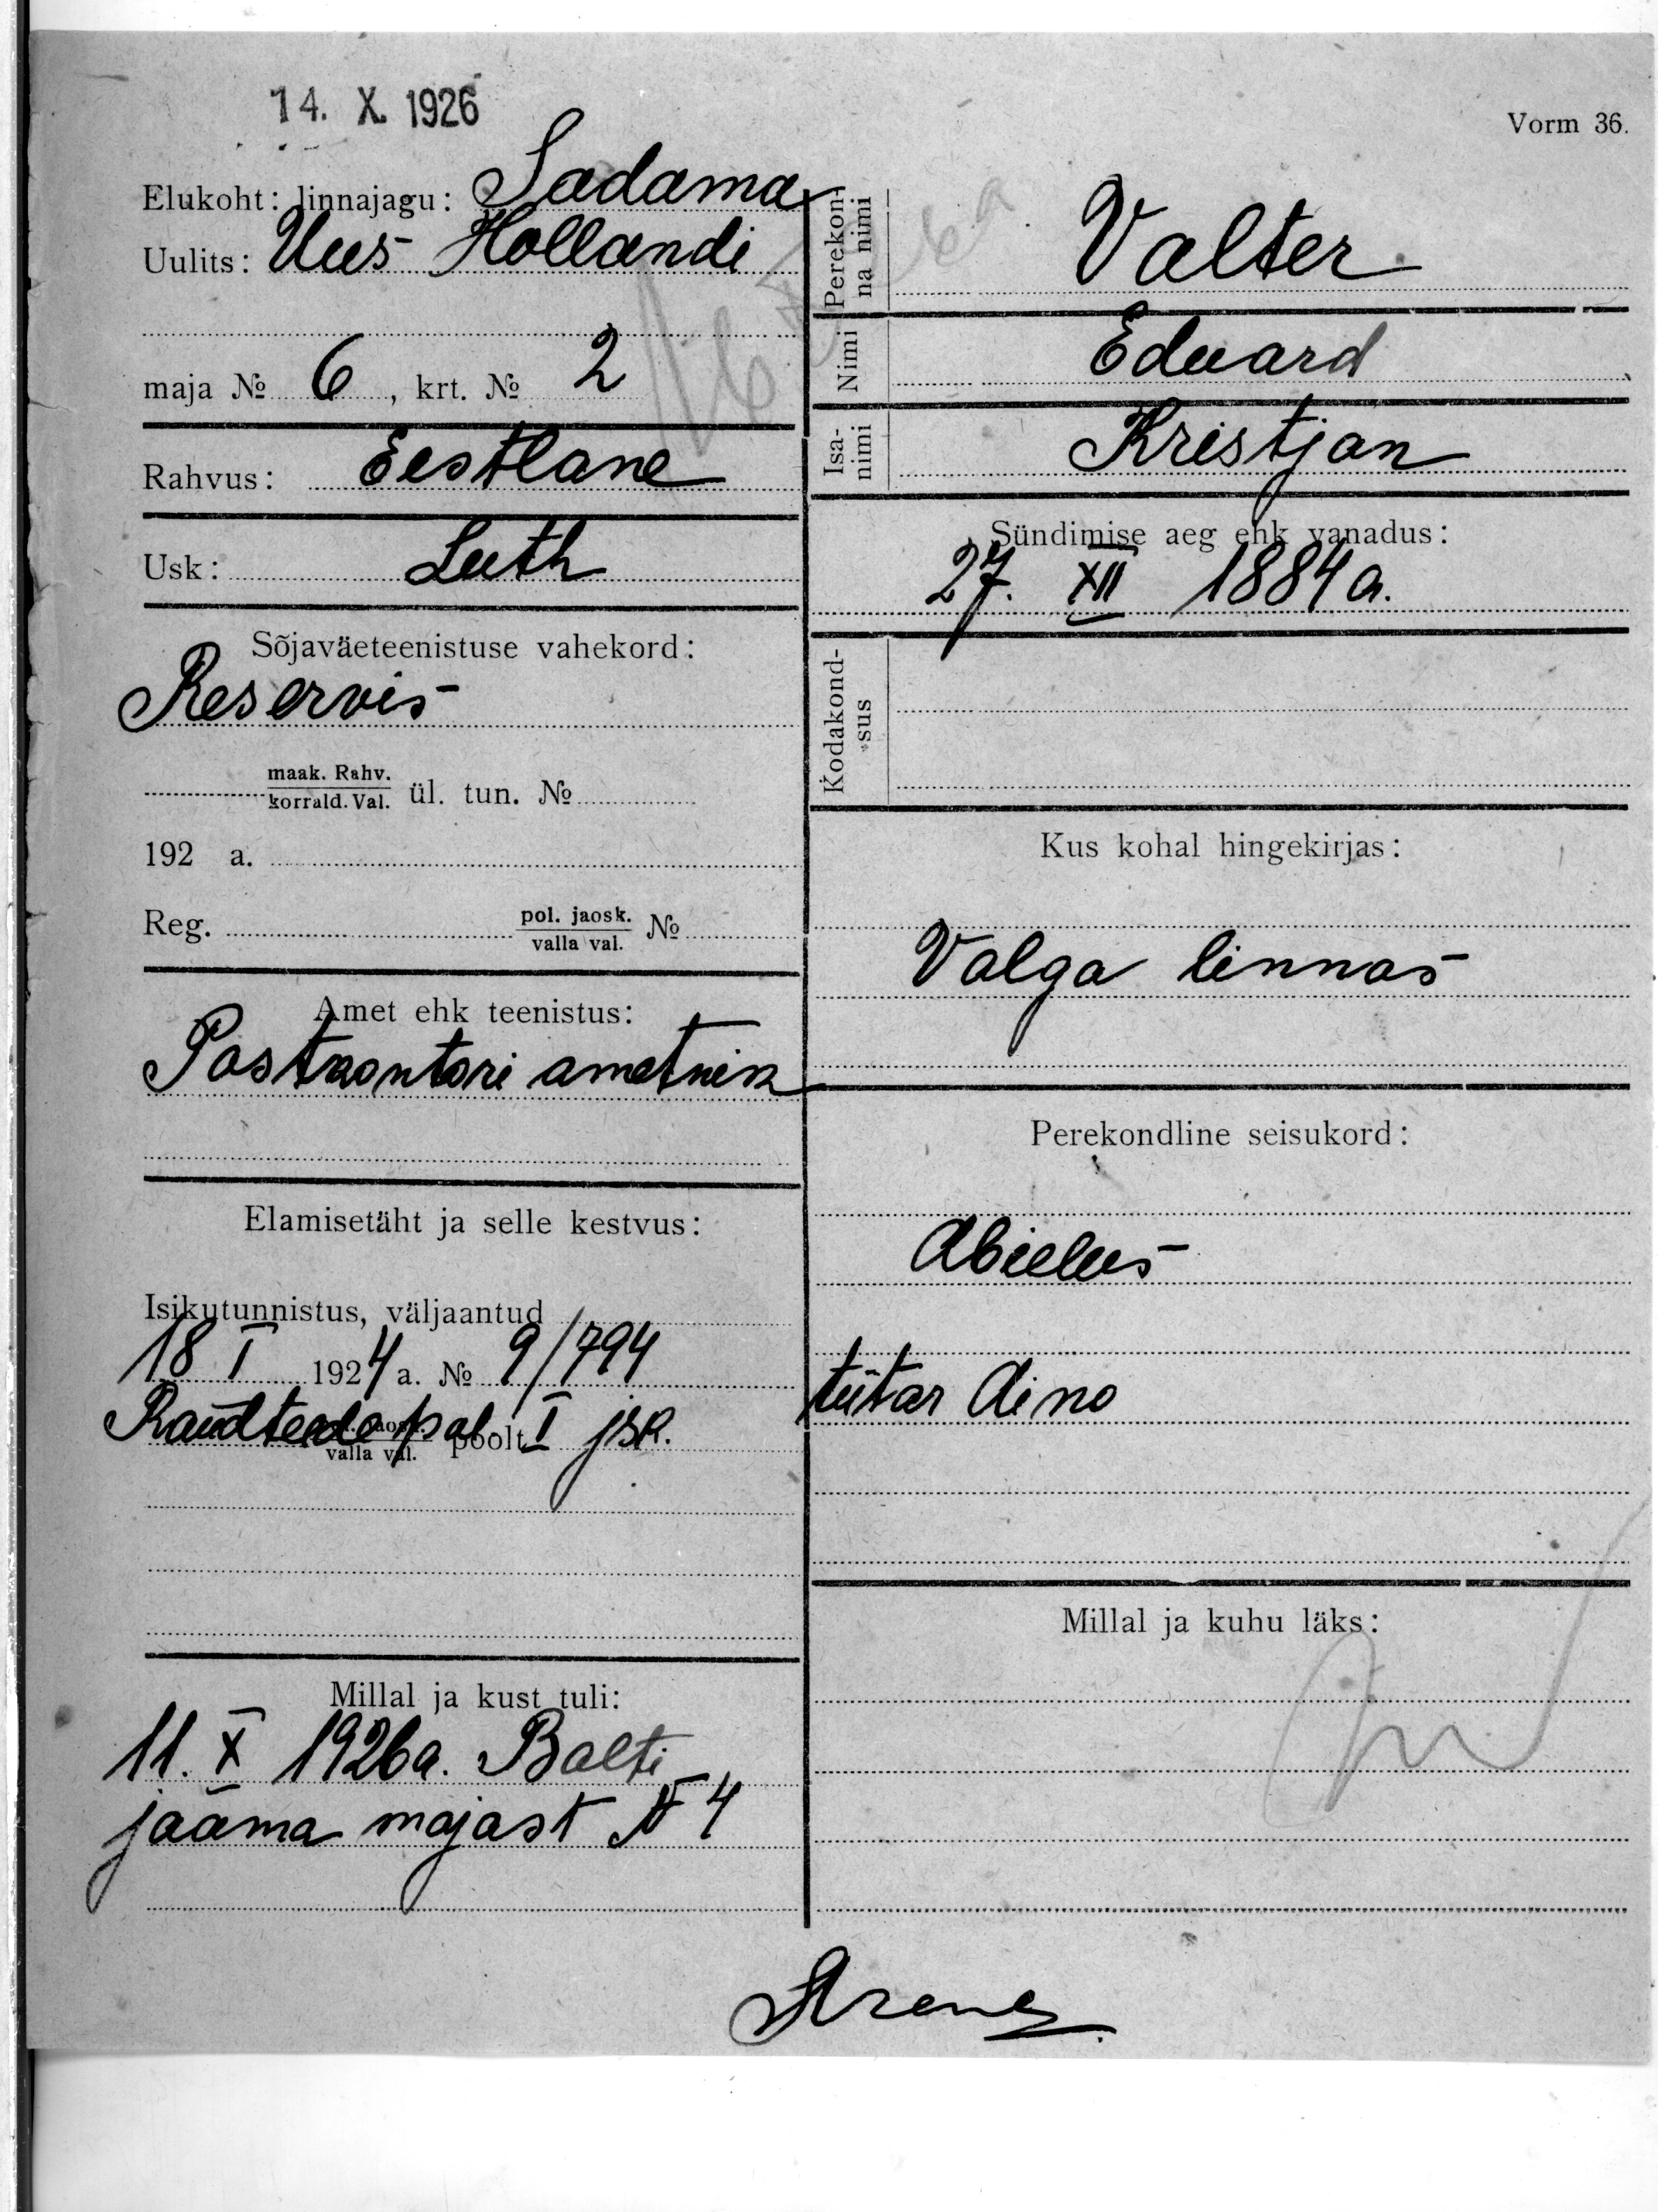 14. X. 1926
Vorm 36.
Elukoht: linnajagu: Sadama
Uulits: Uus Hollandi
maja № 6, krt. № 2
Rahvus: Eestlane
Usk: Luth
Sõjaväeteenistuse vahekord:
Reservis
maak. Rahv.
korrald. Val. ül. tun. №
192 a.
Reg. pol. jaosk. №
valla val.
Amet ehk teenistus:
Postkontori ametnik
Elamisetäht ja selle kestvus:
Isikutunnistus, väljaantud
18 I 1924 a. № 9/794
Raudteede pol. poolt I jsk.
valla val.
Millal ja kust tuli:
11. X 1926 a. Balti
jaama majast № 4
Perekon-
na nimi
Valter
Nimi
Eduard
Isa-
nimi
Kristjan
Sündimise aeg ehk vanadus:
27. XII 1884 a.
Kodakond-
sus
Kus kohal hingekirjas:
Valga linnas
Perekondline seisukord:
Abielus
tütar Aino
Millal ja kuhu läks: